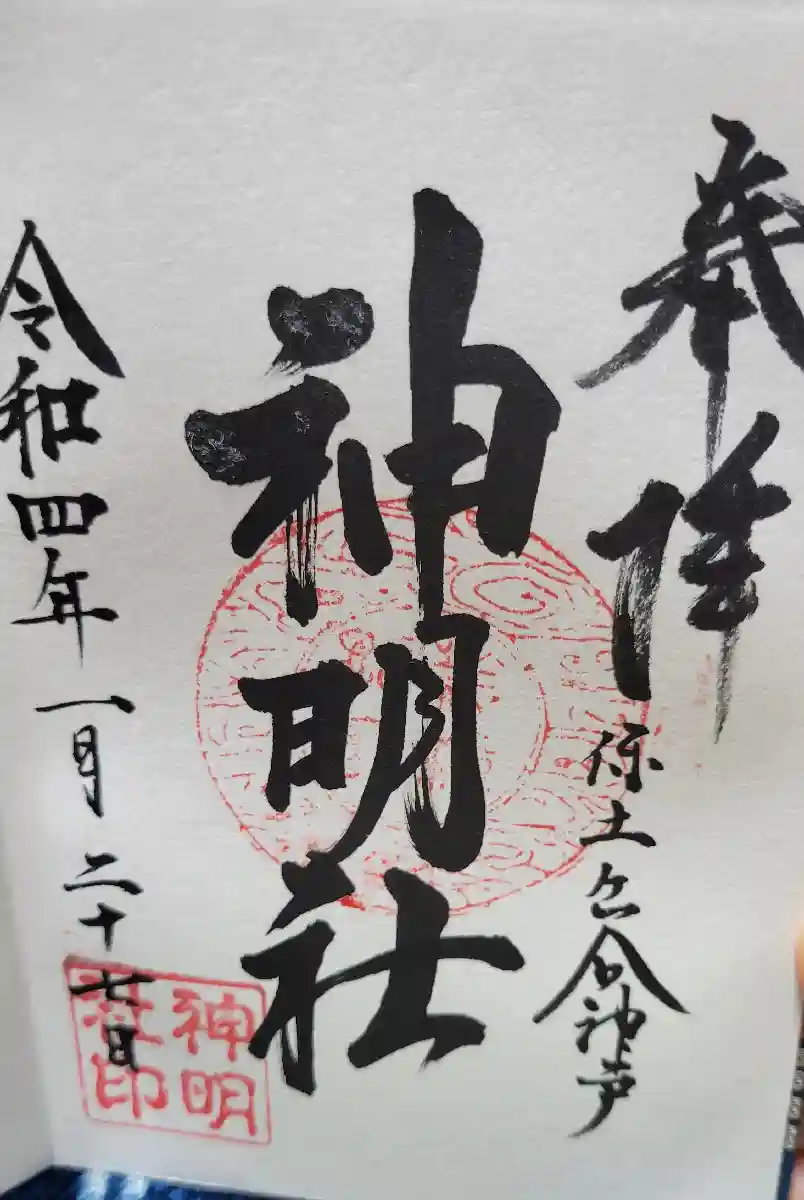 奉拝
保土ヶ谷神戸
神明社
令和四年一月二十七日
神明
社印